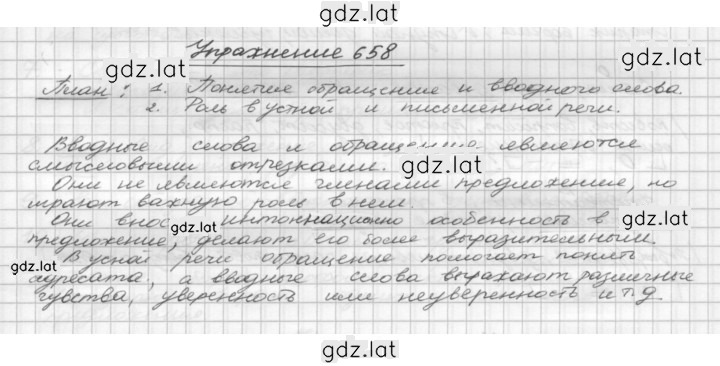 gdz.lat
Упражнение 658
gdz.lat
План: 1. Понятие обращение и вводного слова.
2. Роль в устной и письменной речи.
gdz.lat
Вводные слова и обращения являются
смысловыми отрезками.
gdz.lat
Они не являются членами предложение, но
играют важную роль в нем.
Они внос интоннационно особенность в
gdz.lat
предложение, делают его более выразительным.
В усной речи обращение помогает понять
gdz.lat
адресата, а вводные слова выражают различные
gdz.lat
чувства, уверенность или неуверенность и т.д.
gdz.lat